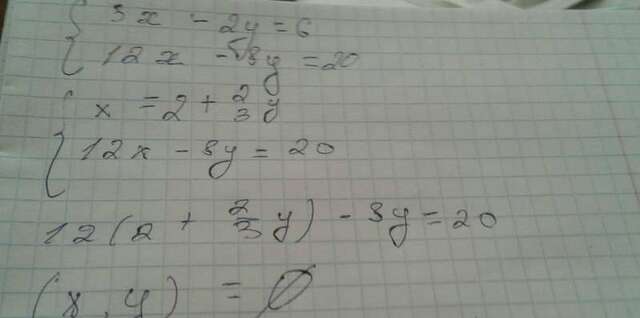 { 3x - 2y = 6
12x - 8y = 20
{ x = 2 + 2/3 y
12x - 8y = 20
12(2 + 2/3 y) - 8y = 20
(x, y) = ∅